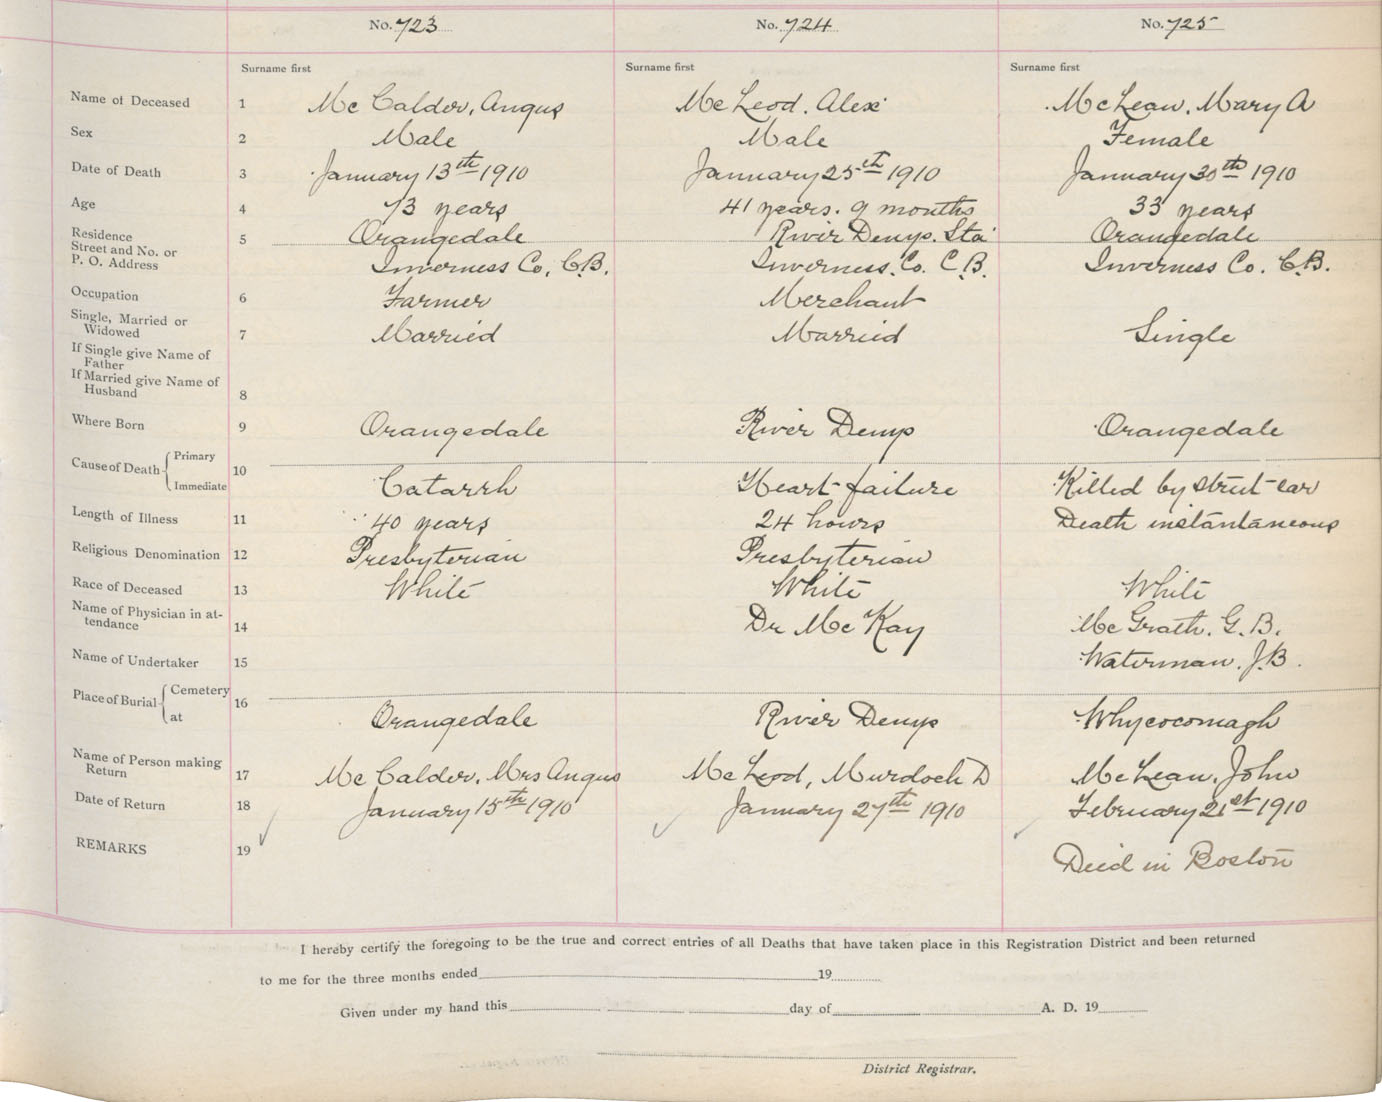 No. 723 No. 724 No. 725
Surname first Surname first Surname first
Name of Deceased 1 McCalder, Angus McLeod, Alex McLean, Mary A
Sex 2 Male Male Female
Date of Death 3 January 13th 1910 January 25th 1910 January 30th 1910
Age 4 73 years 41 years. 9 months 33 years
Residence
Street and No. or
P. O. Address 5 Orangedale River Denys. Sta Orangedale
Inverness Co, C.B. Inverness. Co. C.B. Inverness Co. C.B.
Occupation 6 Farmer Merchant
Single, Married or
Widowed 7 Married Married Single
If Single give Name of
Father
If Married give Name of
Husband 8
Where Born 9 Orangedale River Denys Orangedale
Cause of Death Primary
Immediate 10 Catarrh Heart failure Killed by street car
Length of Illness 11 40 years 24 hours Death instantaneous
Religious Denomination 12 Presbyterian Presbyterian
Race of Deceased 13 White White White
Name of Physician in at-
tendance 14 Dr McKay McGrath. G.B.
Name of Undertaker 15 Waterman. J.B.
Place of Burial Cemetery
at 16 Orangedale River Denys Whycocomagh
Name of Person making
Return 17 McCalder, Mrs Angus McLeod, Murdoch D McLean, John
Date of Return 18 January 15th 1910 January 27th 1910 February 21st 1910
REMARKS 19 Deid in Boston
I hereby certify the foregoing to be the true and correct entries of all Deaths that have taken place in this Registration District and been returned
to me for the three months ended 19
Given under my hand this day of A. D. 19
District Registrar.